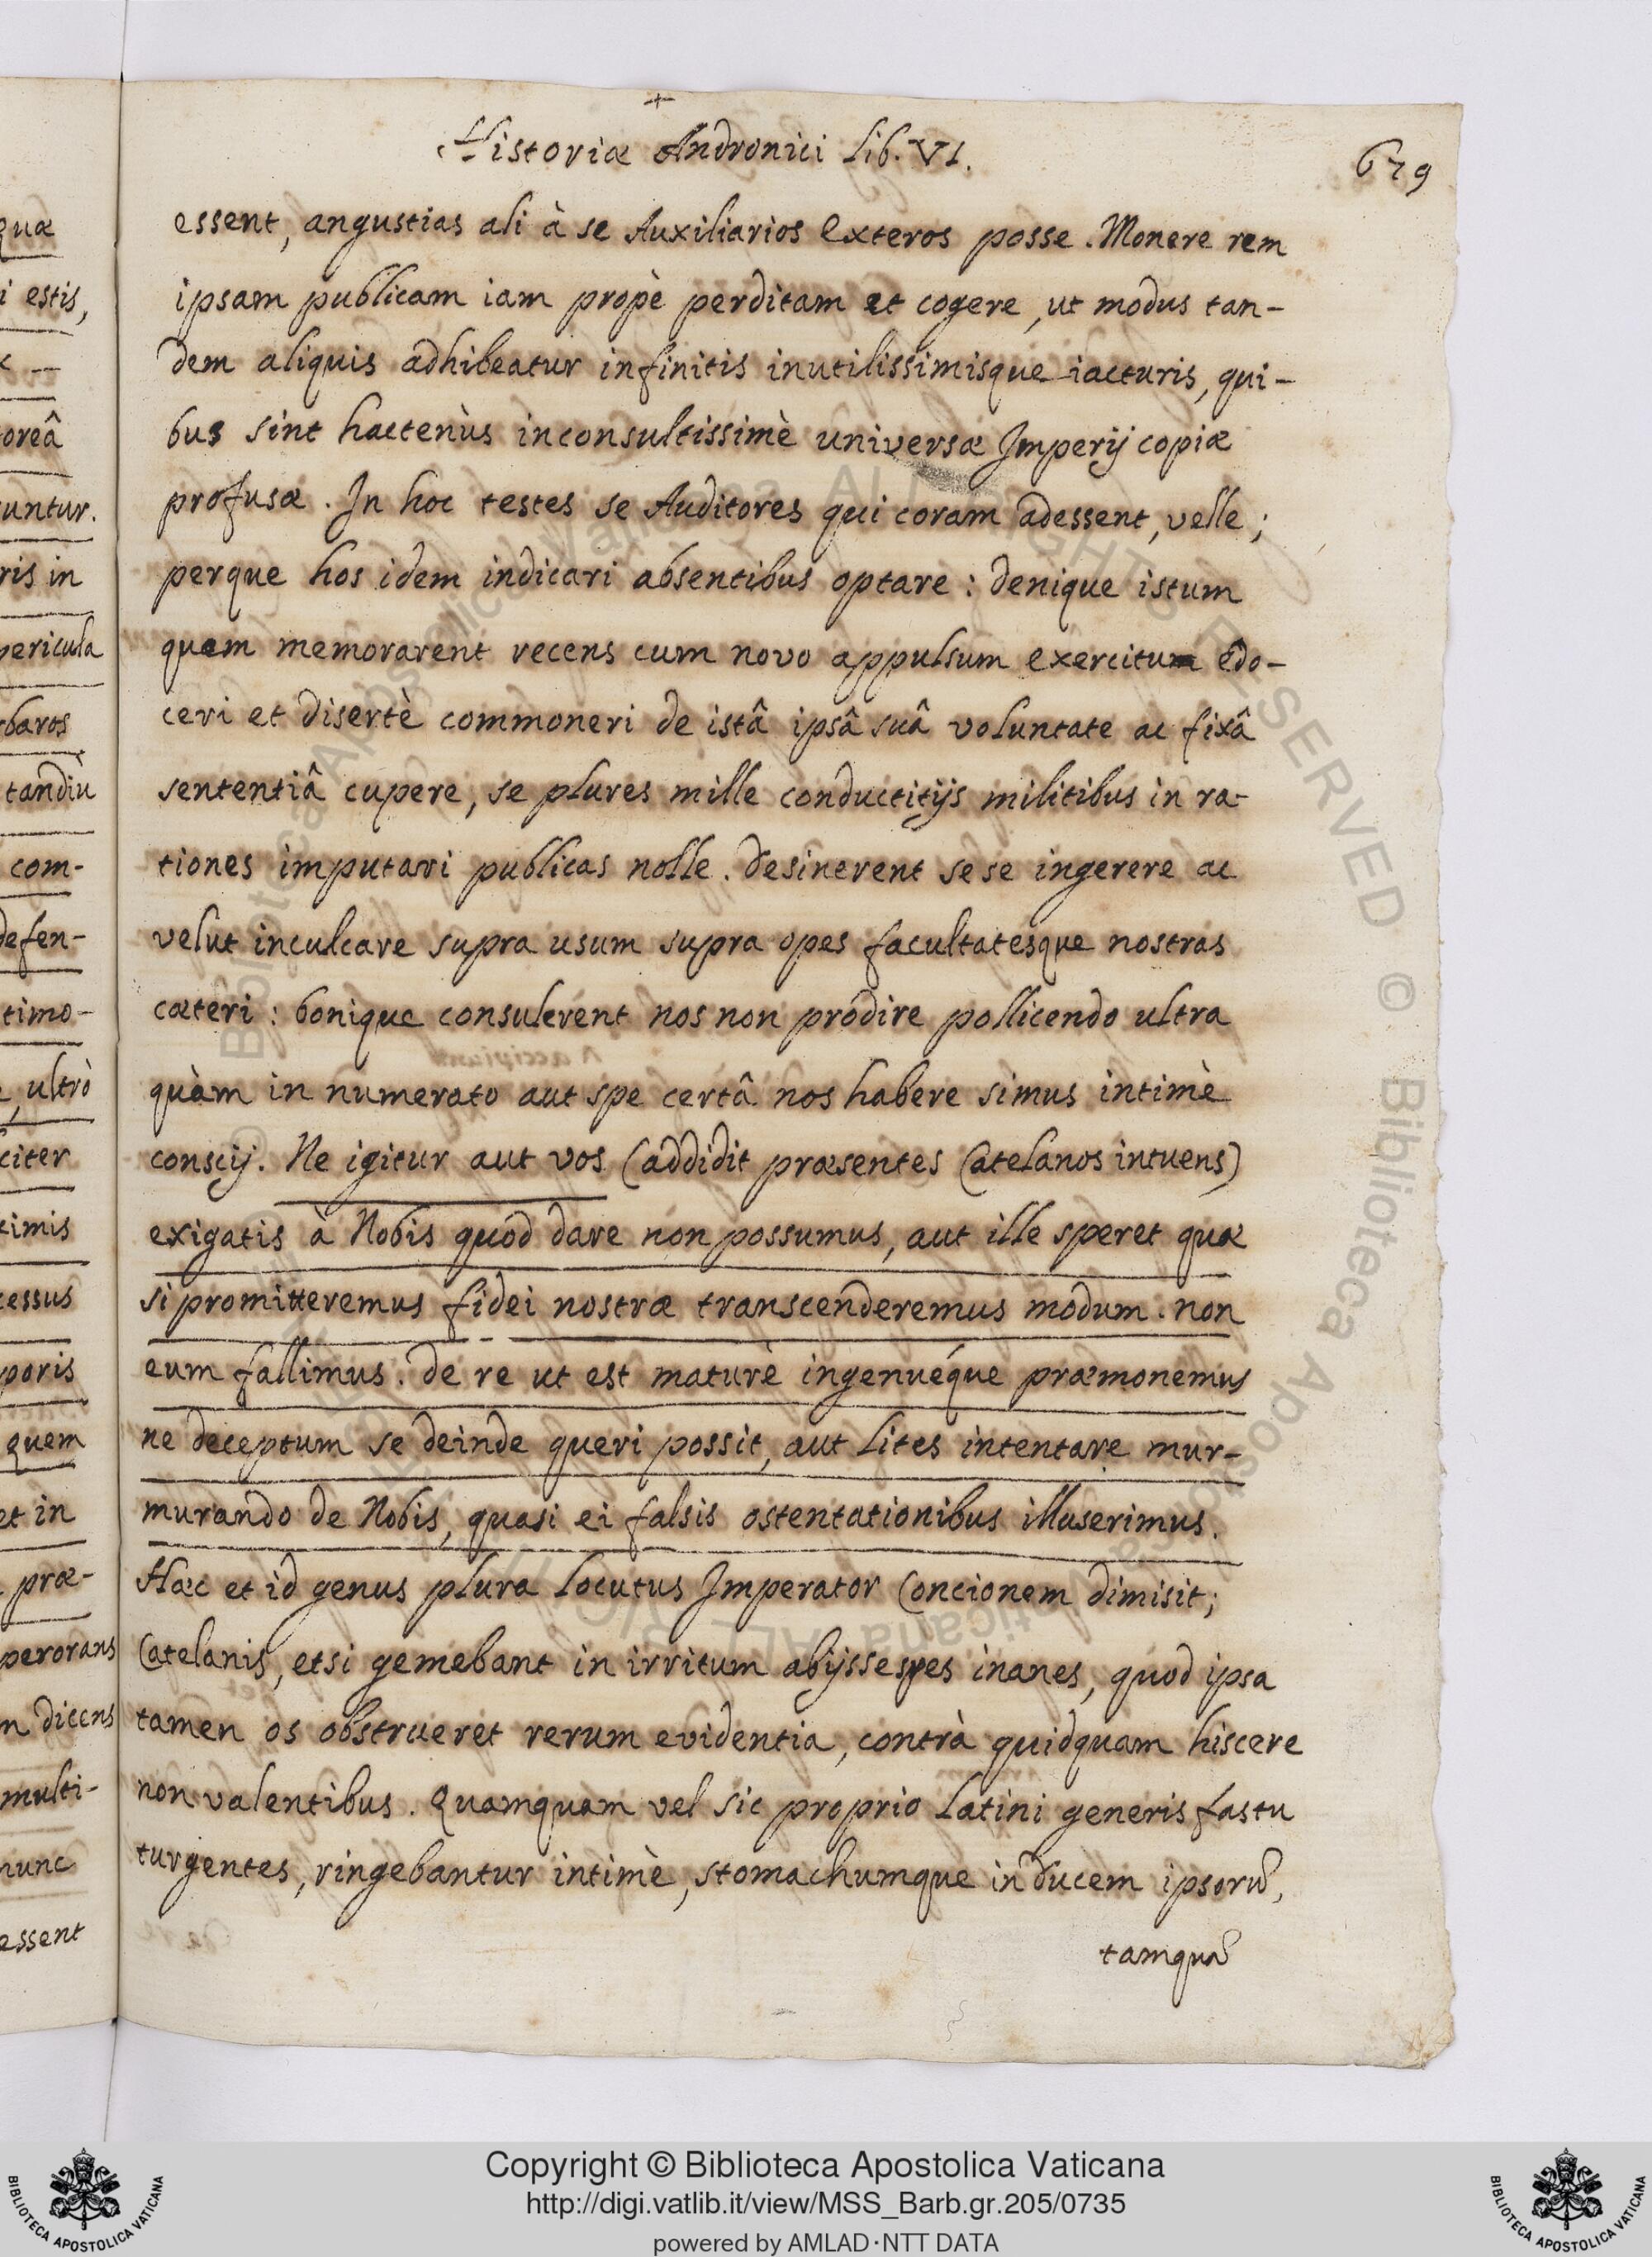 Historiæ Andronici Lib. VI.
679
essent, angustias ali à se Auxiliarios Exteros posse. Monere rem
ipsam publicam iam propè perditam et cogere, ut modus tan-
dem aliquis adhibeatur infinitis inutilissimisque iacturis, qui-
bus sint hactenùs inconsultissimè universæ Imperij copiæ
profusæ. In hoc testes se Auditores qui coram adessent, velle;
perque hos idem indicari absentibus optare: denique istum
quem memorarent recens cum novo appulsum exercitum edo-
ceri et disertè commoneri de istâ ipsâ suâ voluntate ac fixâ
sententiâ cupere, se plures mille conductitijs militibus in ra-
tiones imputari publicas nolle. desinerent sese ingerere ac
velut inculcare supra usum supra opes facultatesque nostras
cæteri: bonique consulerent nos non prodire pollicendo ultra
quàm in numerato aut spe certâ nos habere simus intimè
conscij. Ne igitur aut vos (addidit præsentes Catelanos intuens)
exigatis à Nobis quod dare non possumus, aut ille speret quæ
si promitteremus fidei nostræ transcenderemus modum. non
eum fallimus. de re ut est maturè ingenuéque præmonemus
ne deceptum se deinde queri possit, aut Lites intentare mur-
murando de Nobis, quasi ei falsis ostentationibus illuserimus.
Hæc et id genus plura locutus Imperator Concionem dimisit;
Catelanis, etsi gemebant in irritum abijsse spes inanes, quod ipsa
tamen os obstrueret rerum evidentia, contrà quidquam hiscere
non valentibus. Quamquam vel sic proprio Latini generis fastu
turgentes, ringebantur intimè, stomachumque in ducem ipsorũ,
tamquã
quæ
i estis,
oreâ
untur.
ris in
pericula
baros
tandiù
com-
defen-
timo-
, ultrò
citer
timis
cessus
poris
quem
et in
præ-
perorans
n dicens
multi-
nunc
essent
Copyright © Biblioteca Apostolica Vaticana
http://digi.vatlib.it/view/MSS_Barb.gr.205/0735
powered by AMLAD·NTT DATA
BIBLIOTECA APOSTOLICA VATICANA
BIBLIOTECA APOSTOLICA VATICANA